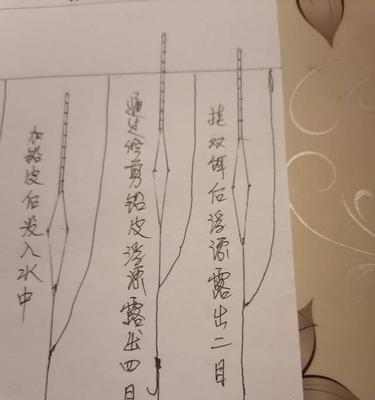 加铅皮后没入水中
通过修剪铅皮浮漂露出四目
挂双饵后浮漂露出二目